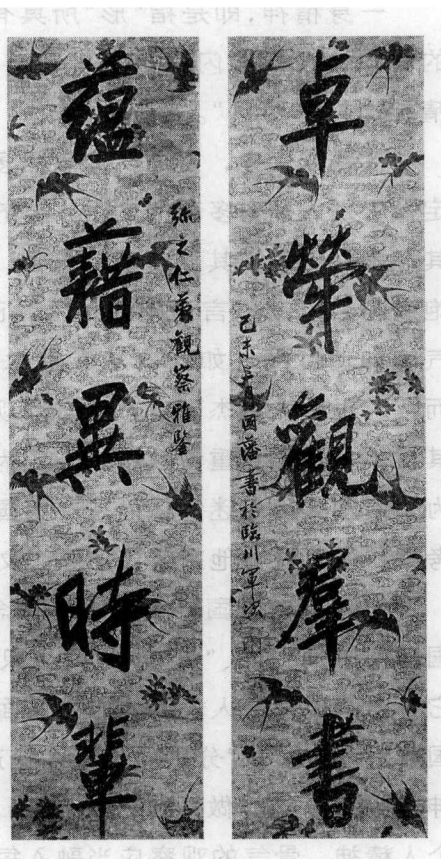 卓犖觀羣書
己未 月國藩書於臨川軍次
蘊藉異時輩
弥之仁 觀察雅鑒